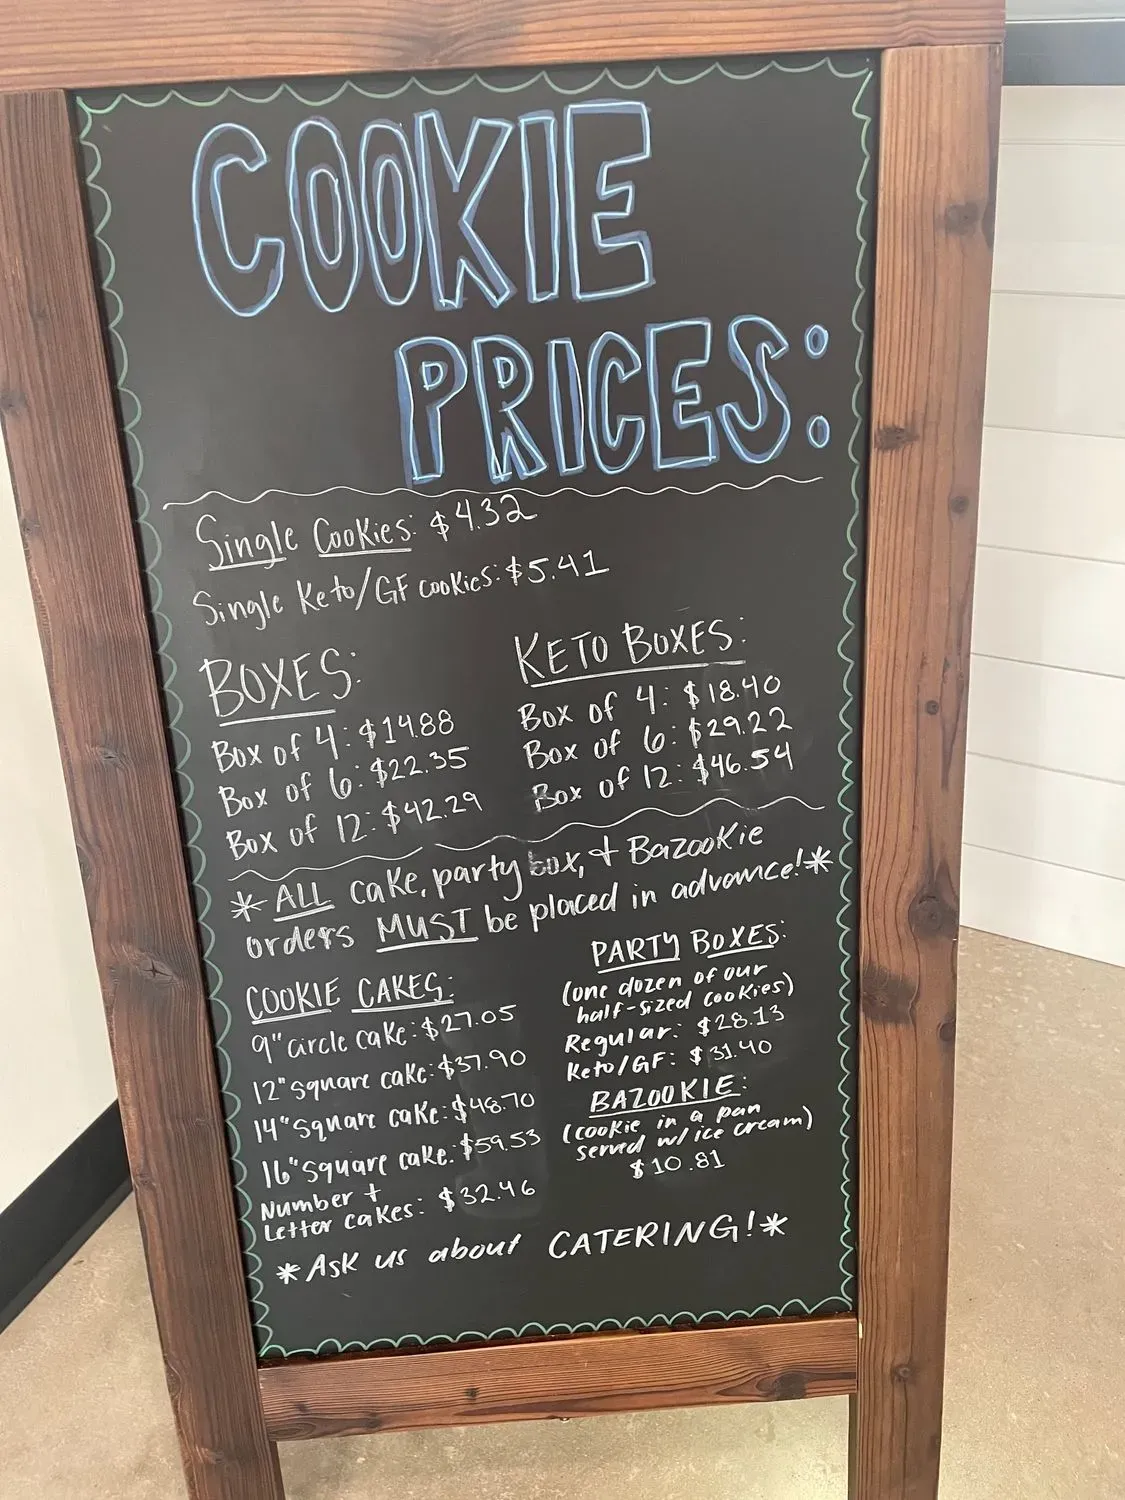 COOKIE
PRICES:
Single Cookies: $4.32
Single Keto/GF cookies: $5.41
BOXES:
Box of 4: $14.88
Box of 6: $22.35
Box of 12: $42.29
KETO BOXES:
Box of 4: $18.40
Box of 6: $29.22
Box of 12: $46.54
*ALL cake, party box, + Bazookie
orders MUST be placed in advance!*
COOKIE CAKES:
9" circle cake: $27.05
12" square cake: $37.90
14" square cake: $48.70
16" square cake: $59.53
Number +
Letter cakes: $32.46
PARTY BOXES:
(one dozen of our
half-sized cookies)
Regular: $28.13
Keto/GF: $31.40
BAZOOKIE:
(cookie in a pan
served w/ ice cream)
$10.81
*Ask us about CATERING!*